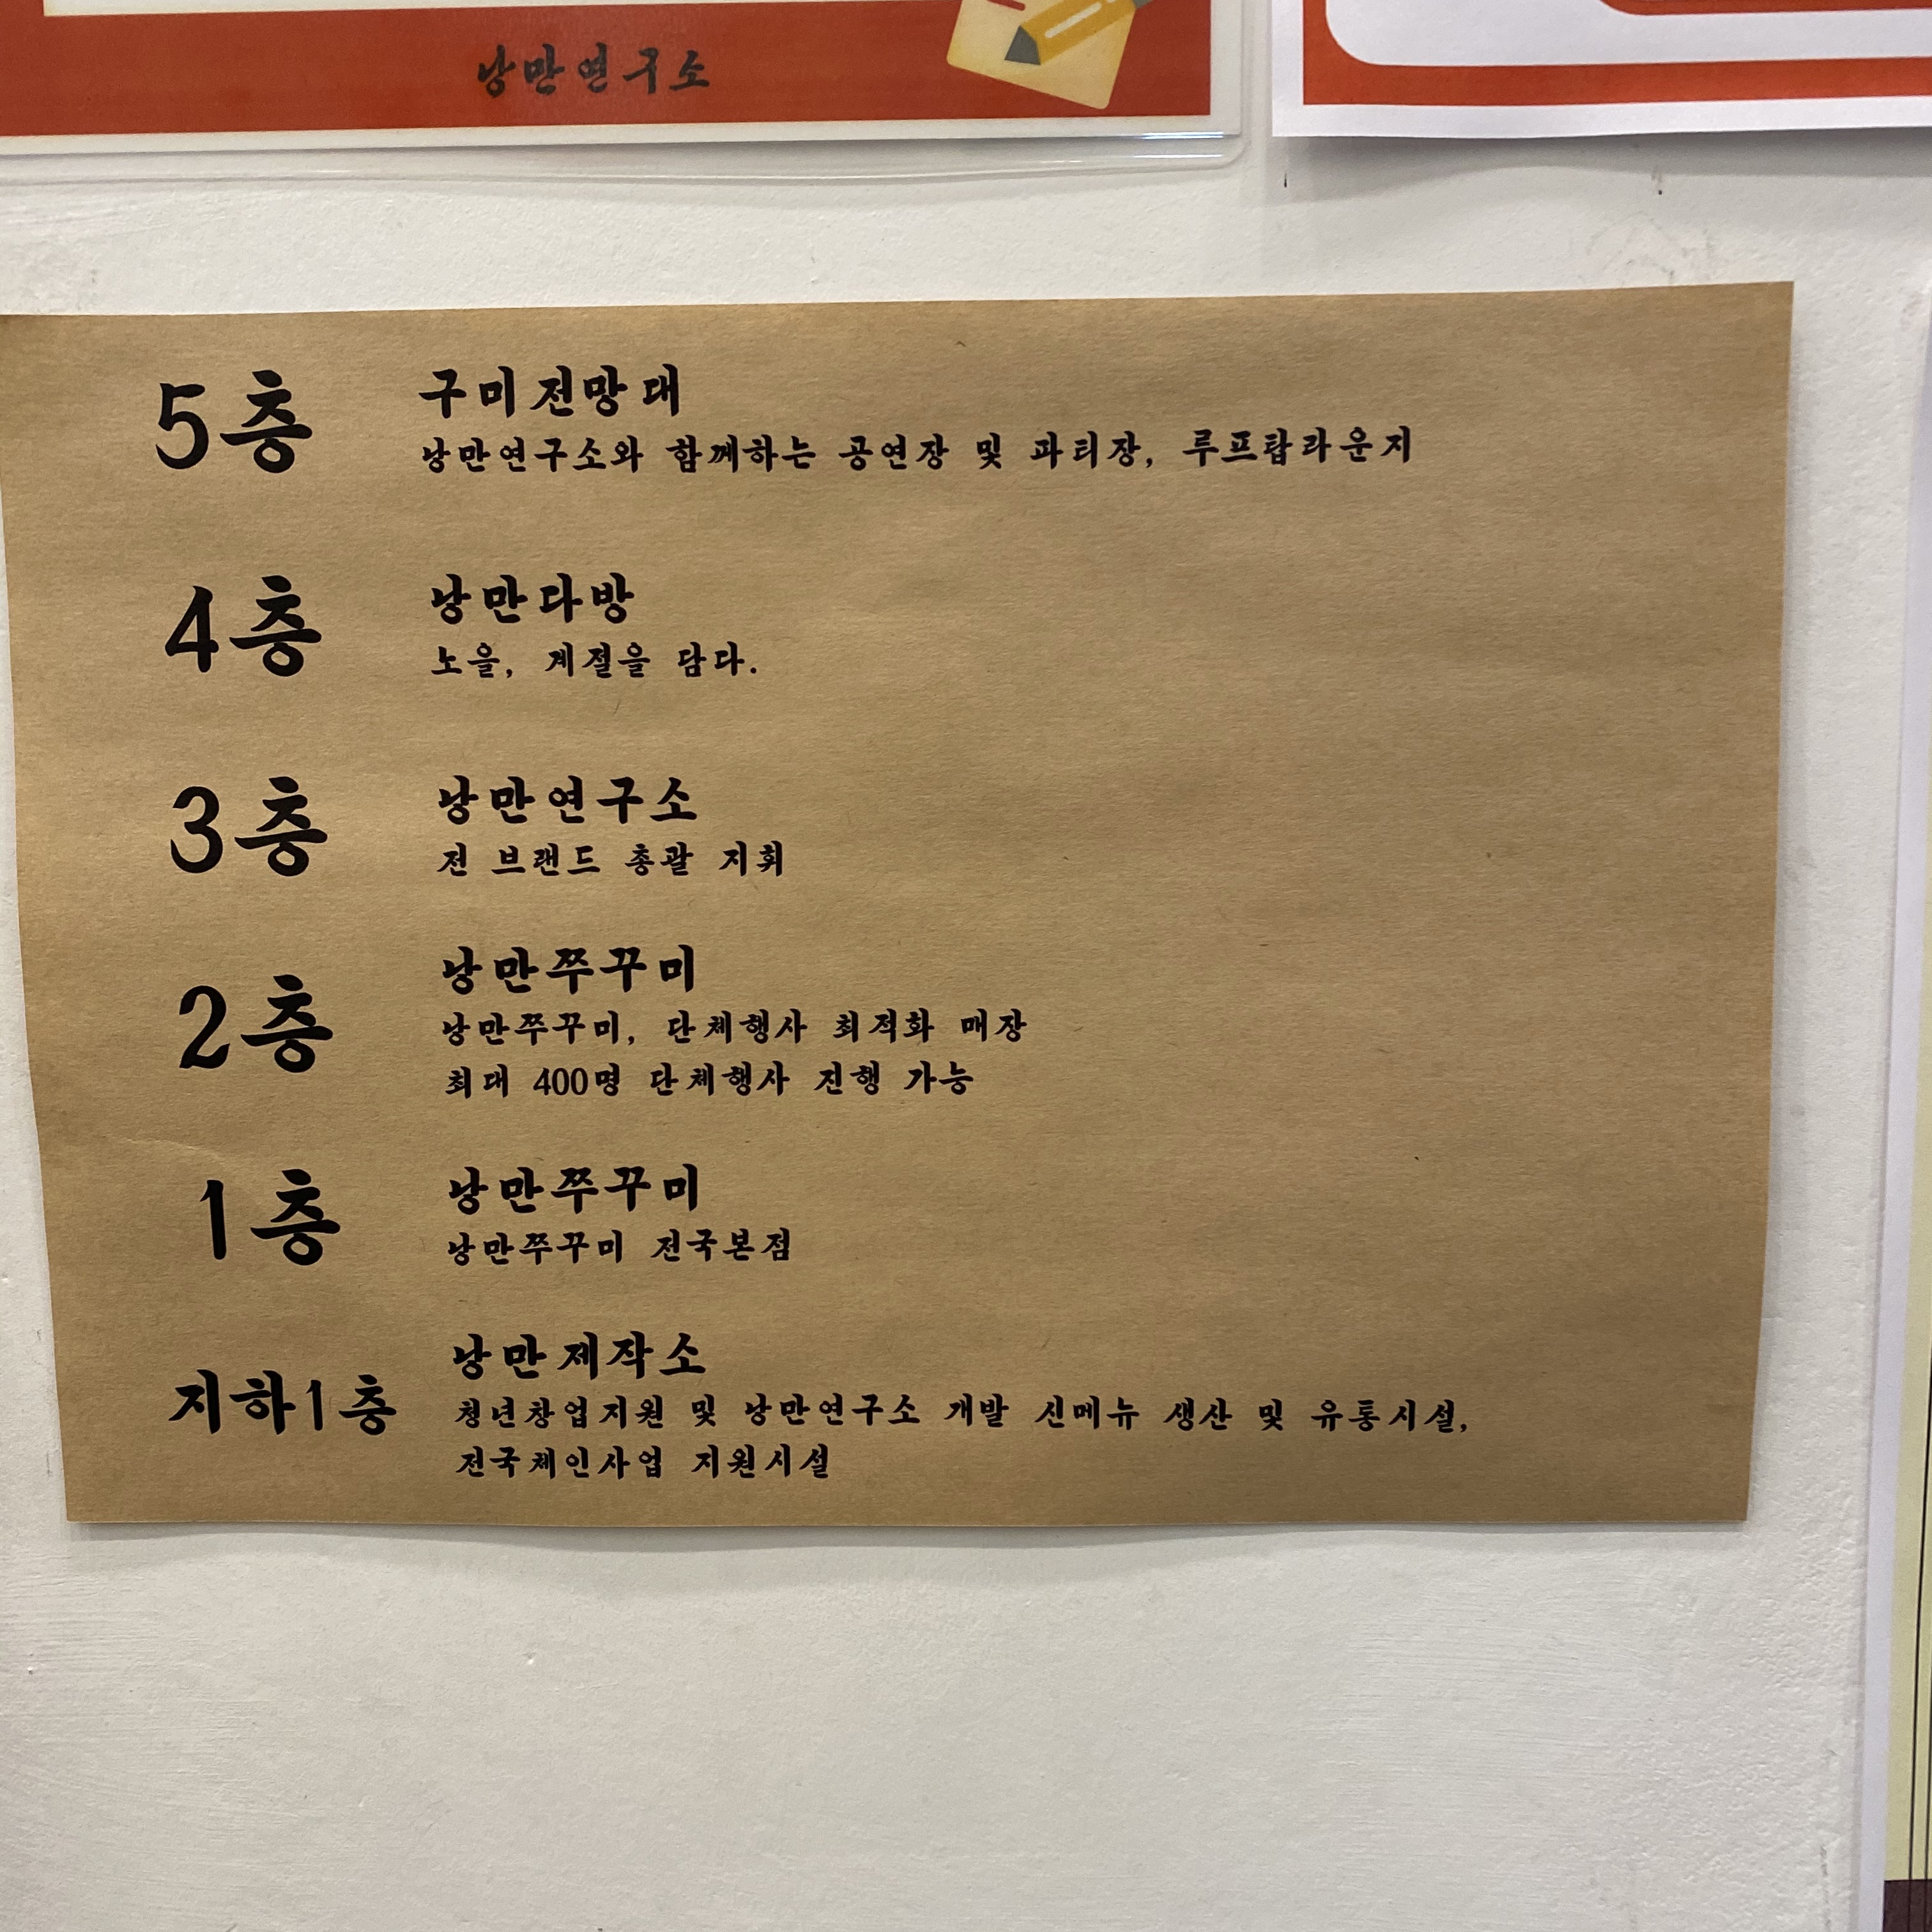 낭만연구소
5층
구미전망대
낭만연구소와 함께하는 공연장 및 파티장, 루프탑라운지
4층
낭만다방
노을, 계절을 담다.
3층
낭만연구소
전 브랜드 총괄 지휘
2층
낭만쭈꾸미
낭만쭈꾸미, 단체행사 최적화 매장
최대 400명 단체행사 진행 가능
1층
낭만쭈꾸미
낭만쭈꾸미 전국본점
지하1층
낭만제작소
청년창업지원 및 낭만연구소 개발 신메뉴 생산 및 유통시설,
전국체인사업 지원시설